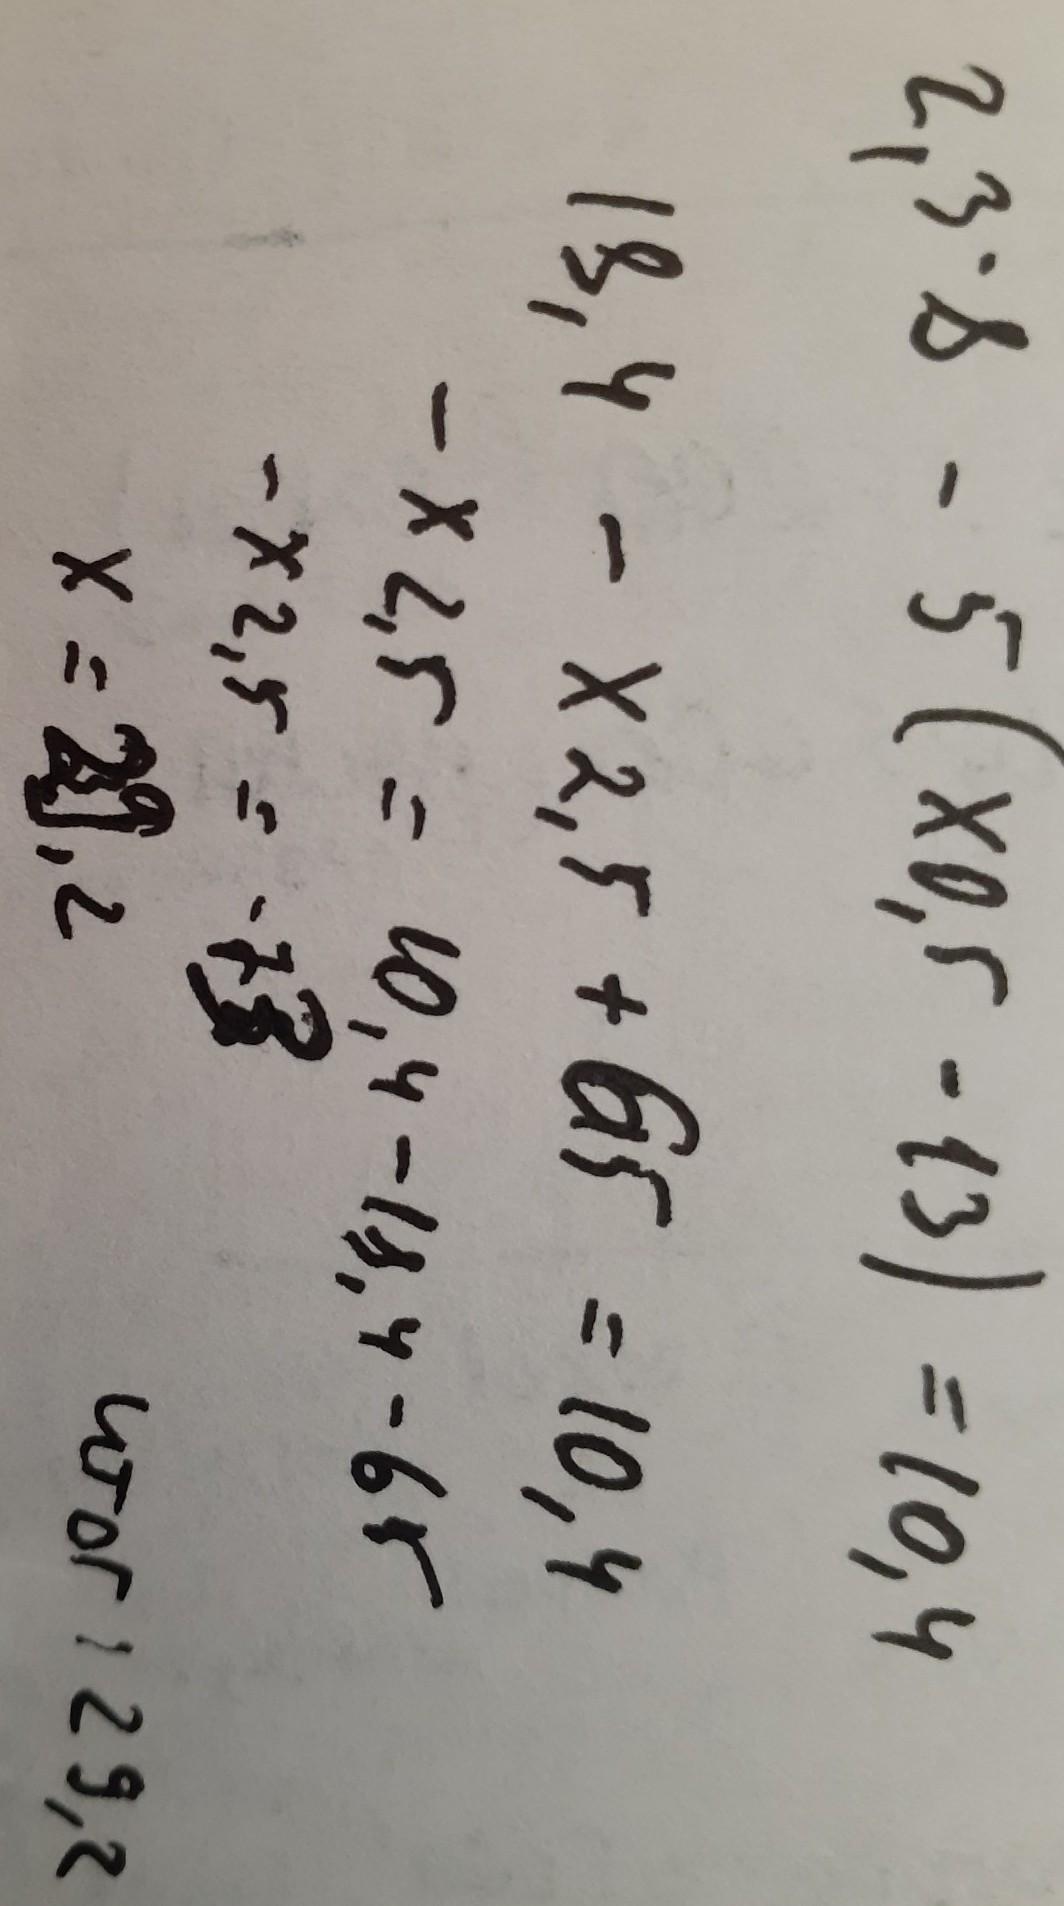 2,3·8 - 5(x0,5 - 13) = 10,4
18,4 - x2,5 + 65 = 10,4
- x2,5 = 10,4 - 18,4 - 65
- x2,5 = -73
x = 29,2
итог 29,2